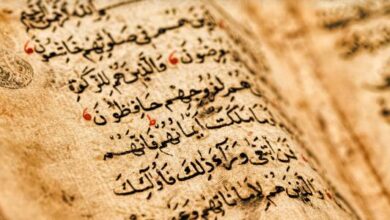 الَّذِينَ هُمْ فِي صَلَوتِهِمْ خَاشِعُونَ
مُعْرِضُونَ وَالَّذِينَ هُمْ لِلزَّكَوةِ
هُمْ لِفُرُوجِهِمْ حَافِظُونَ
مَا مَلَكَتْ أَيْمَانُهُمْ فَإِنَّهُمْ
ابْتَغَى وَرَآءَ ذَلِكَ فَأُولَئِكَ
الَّذِينَ هُمْ لِأَمَانَاتِهِمْ